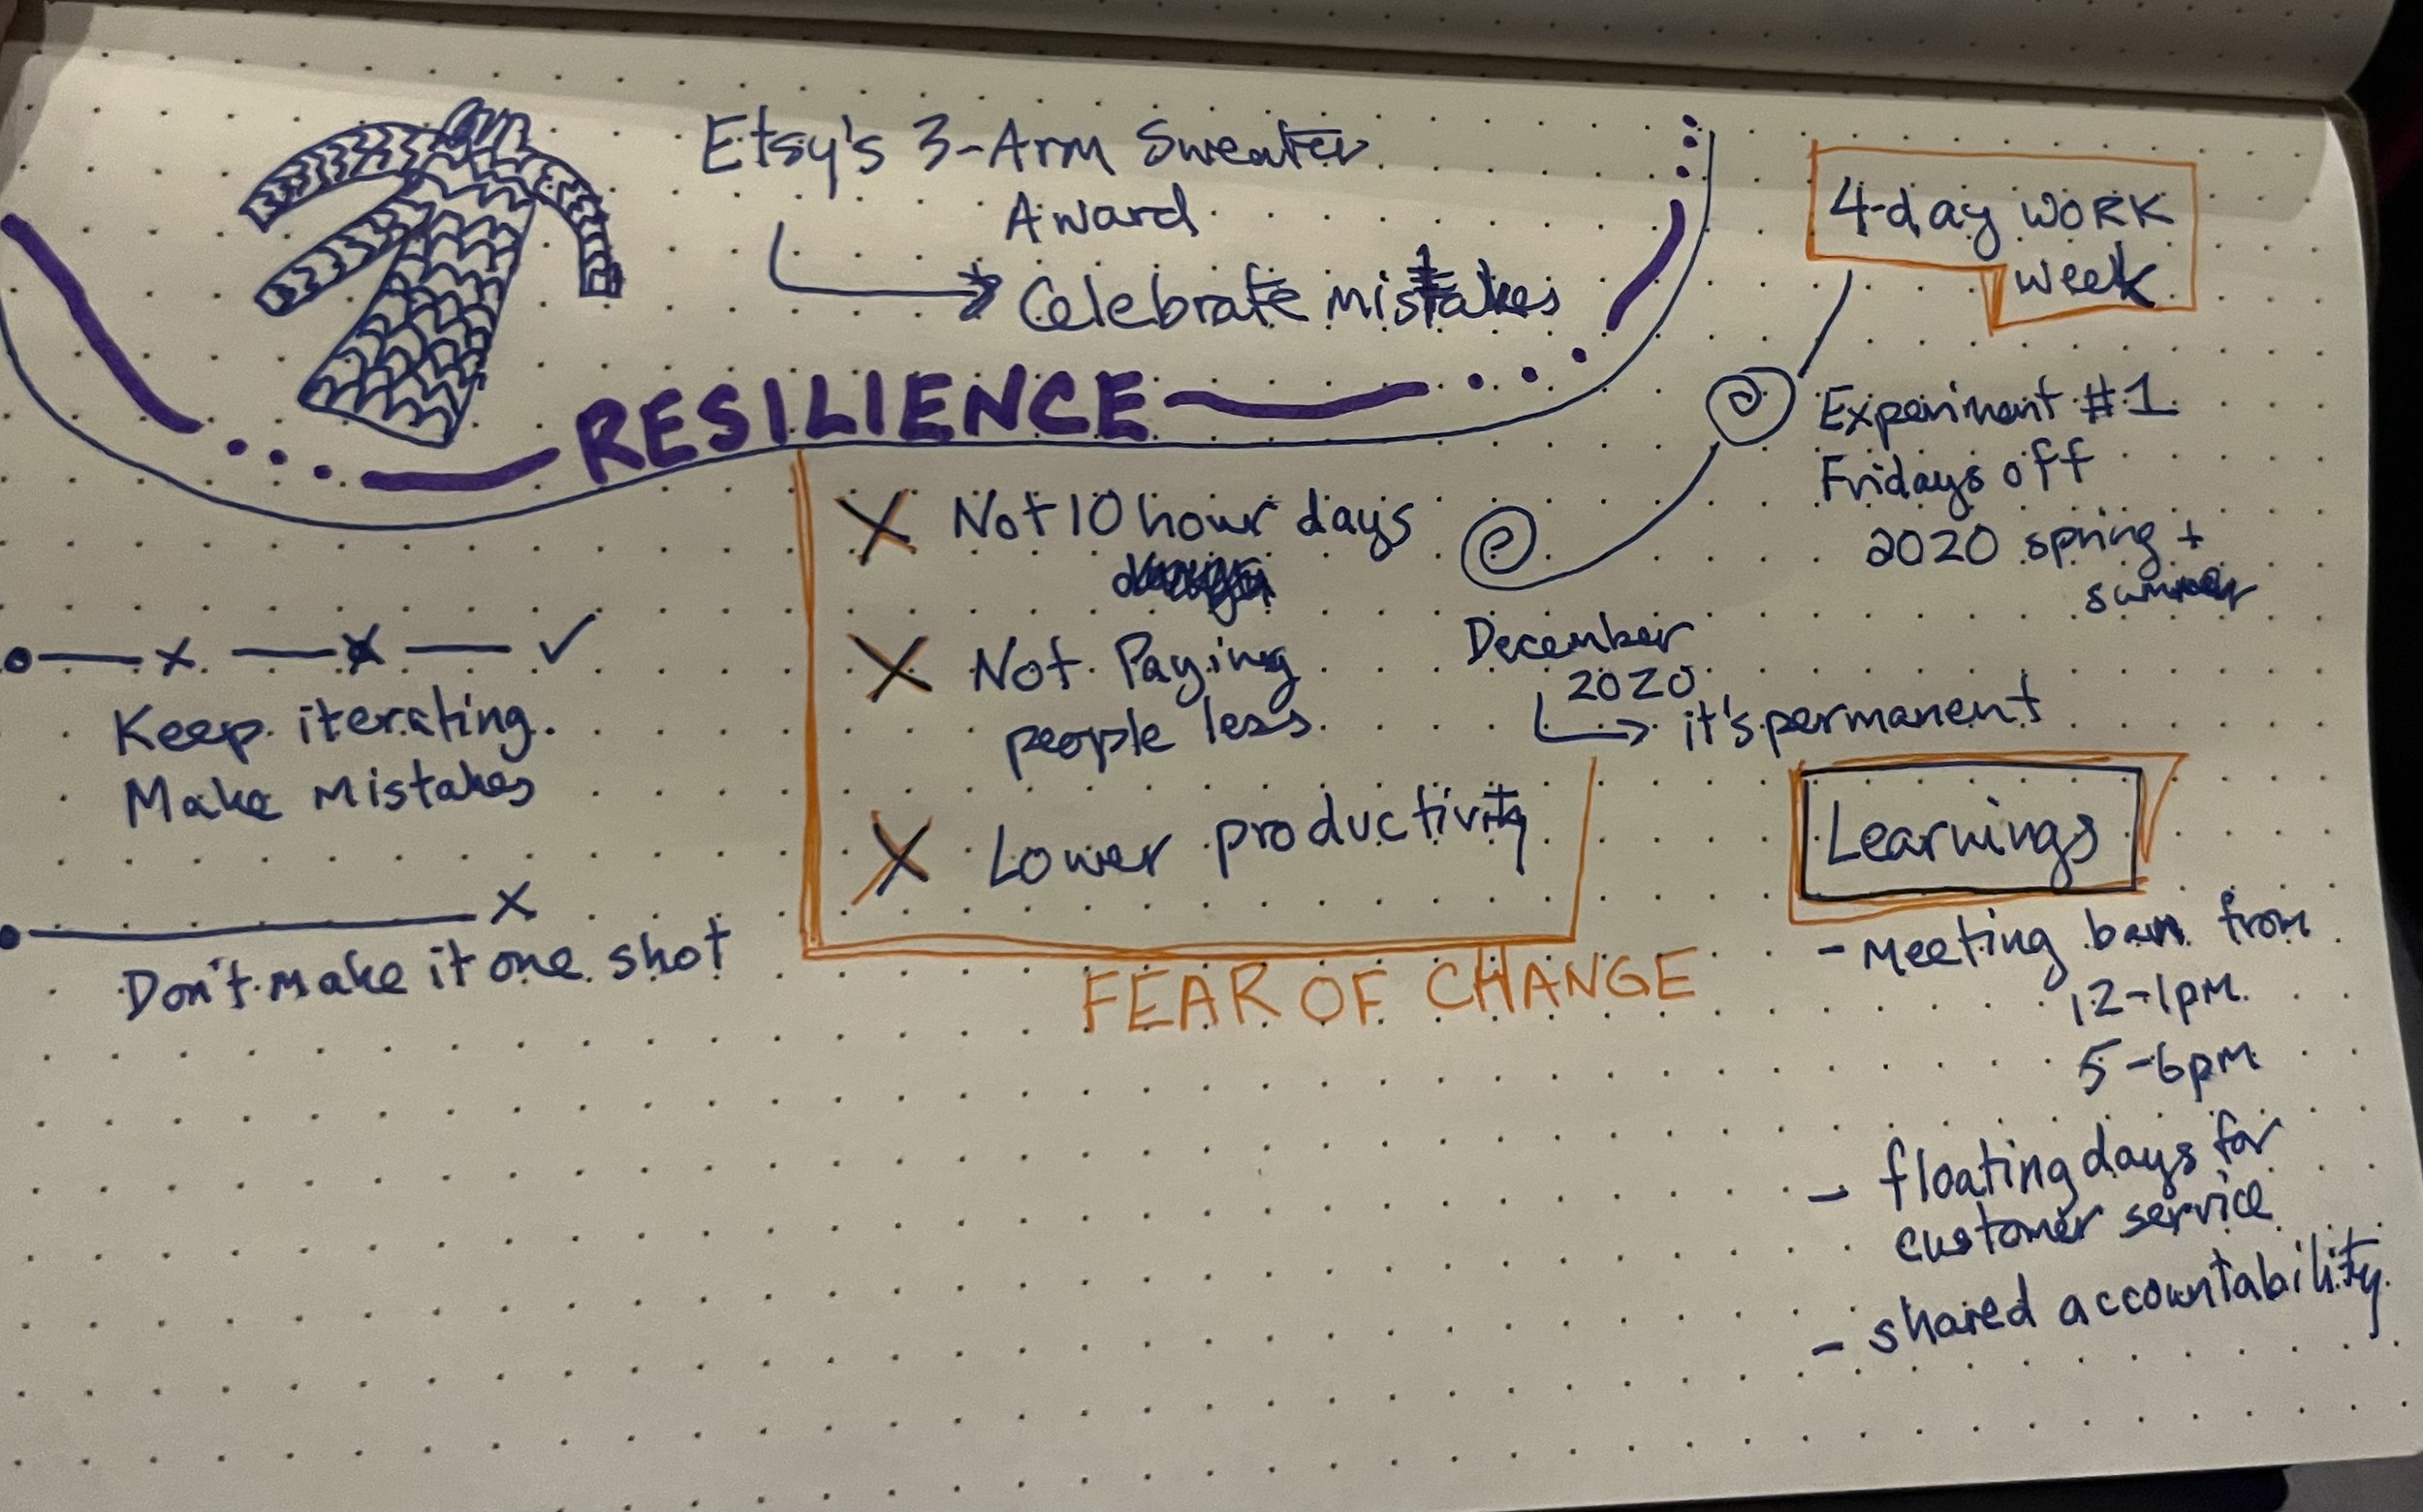 Etsy's 3-Arm Sweater
Award
Celebrate mistakes
RESILIENCE
Keep iterating.
Make Mistakes
Don't make it one shot
Not 10 hour days
Not Paying
people less
Lower productivity
FEAR OF CHANGE
4-day WORK
week
Experiment #1
Fridays off
2020 spring +
summer
December
2020
it's permanent
Learnings
- Meeting ban from
12-1pm
5-6pm
- floating days for
customer service
- shared accountability